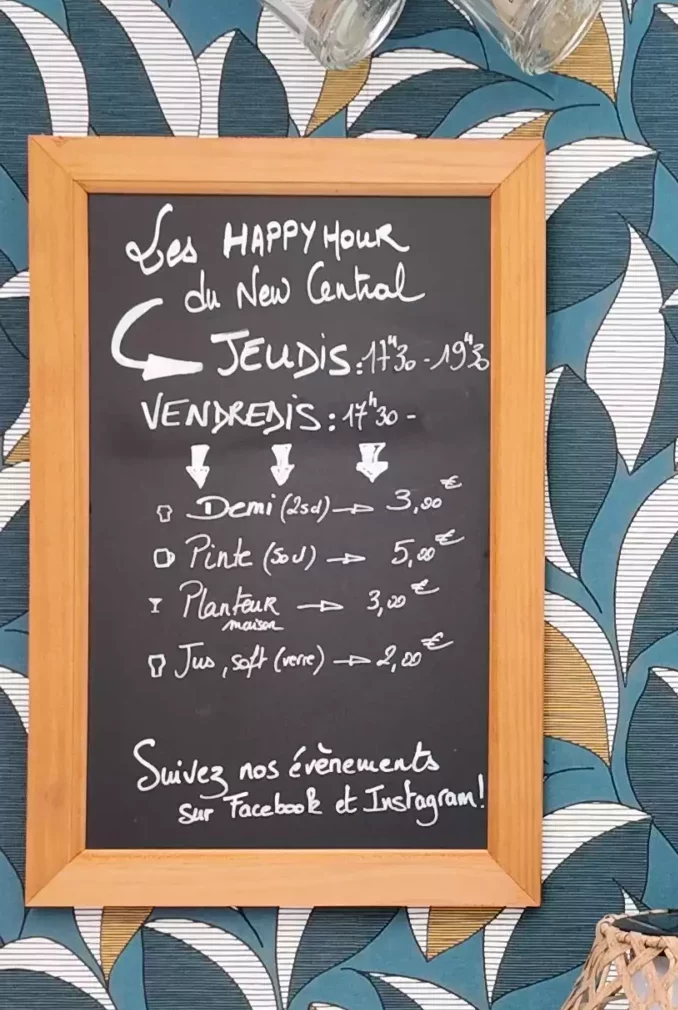 Les HAPPY HOUR
du New Central
JEUDIS : 17h30 - 19h30
VENDREDIS : 17h30 -
Demi (25cl) → 3,00€
Pinte (50cl) → 5,00€
Planteur → 3,00€
maison
Jus, soft (verre) → 2,00€
Suivez nos évènements
sur Facebook et Instagram!